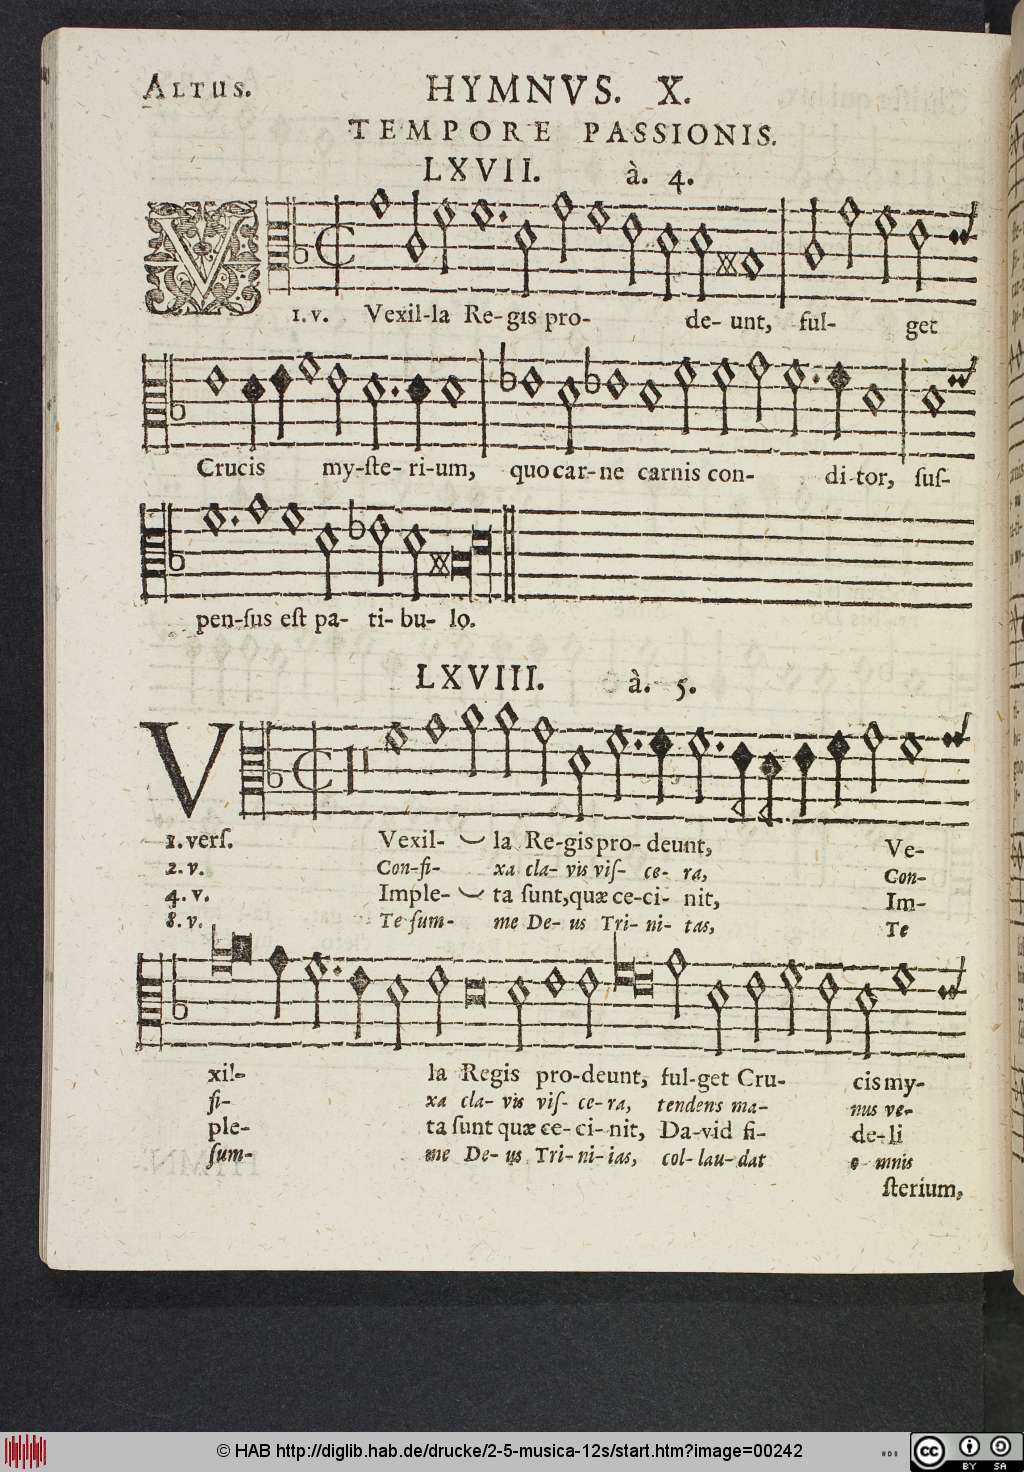 ALTUS.
HYMNVS. X.
TEMPORE PASSIONIS.
LXVII. à. 4.
V
1. v. Vexil-la Re-gis pro- de- unt, ful- get
Crucis my-ſte- ri-um, quo car-ne carnis con- di-tor, ſuſ-
pen-ſus eſt pa- ti- bu- lo.
LXVIII. à. 5.
V
1. verſ. Vexil- la Re-gis pro- deunt, Ve-
2. v. Con-fi- xa cla- vis viſ- ce- ra, Con-
4. v. Imple- ta ſunt, quæ ce-ci- nit, Im-
8. v. Te ſum- me De- us Tri- ni- tas, Te
xil- la Regis pro-deunt, ful-get Cru- cis my-
fi- xa cla- vis viſ- ce-ra, tendens ma- nus ve-
ple- ta ſunt quæ ce- ci- nit, Da-vid fi- de-li
ſum- me De- us Tri-ni-ias, col-lau-dat o- mnis
ſterium,
© HAB http://diglib.hab.de/drucke/2-5-musica-12s/start.htm?image=00242
HAB
cc BY SA